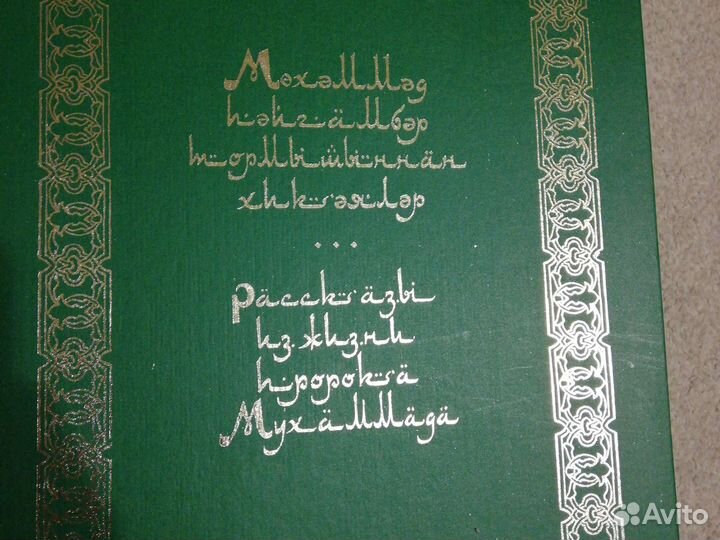 Мөхәммәд
пәйгамбәр
тормышыннан
хикәяләр
...
Рассказы
из жизни
пророка
Мухаммада
Avito